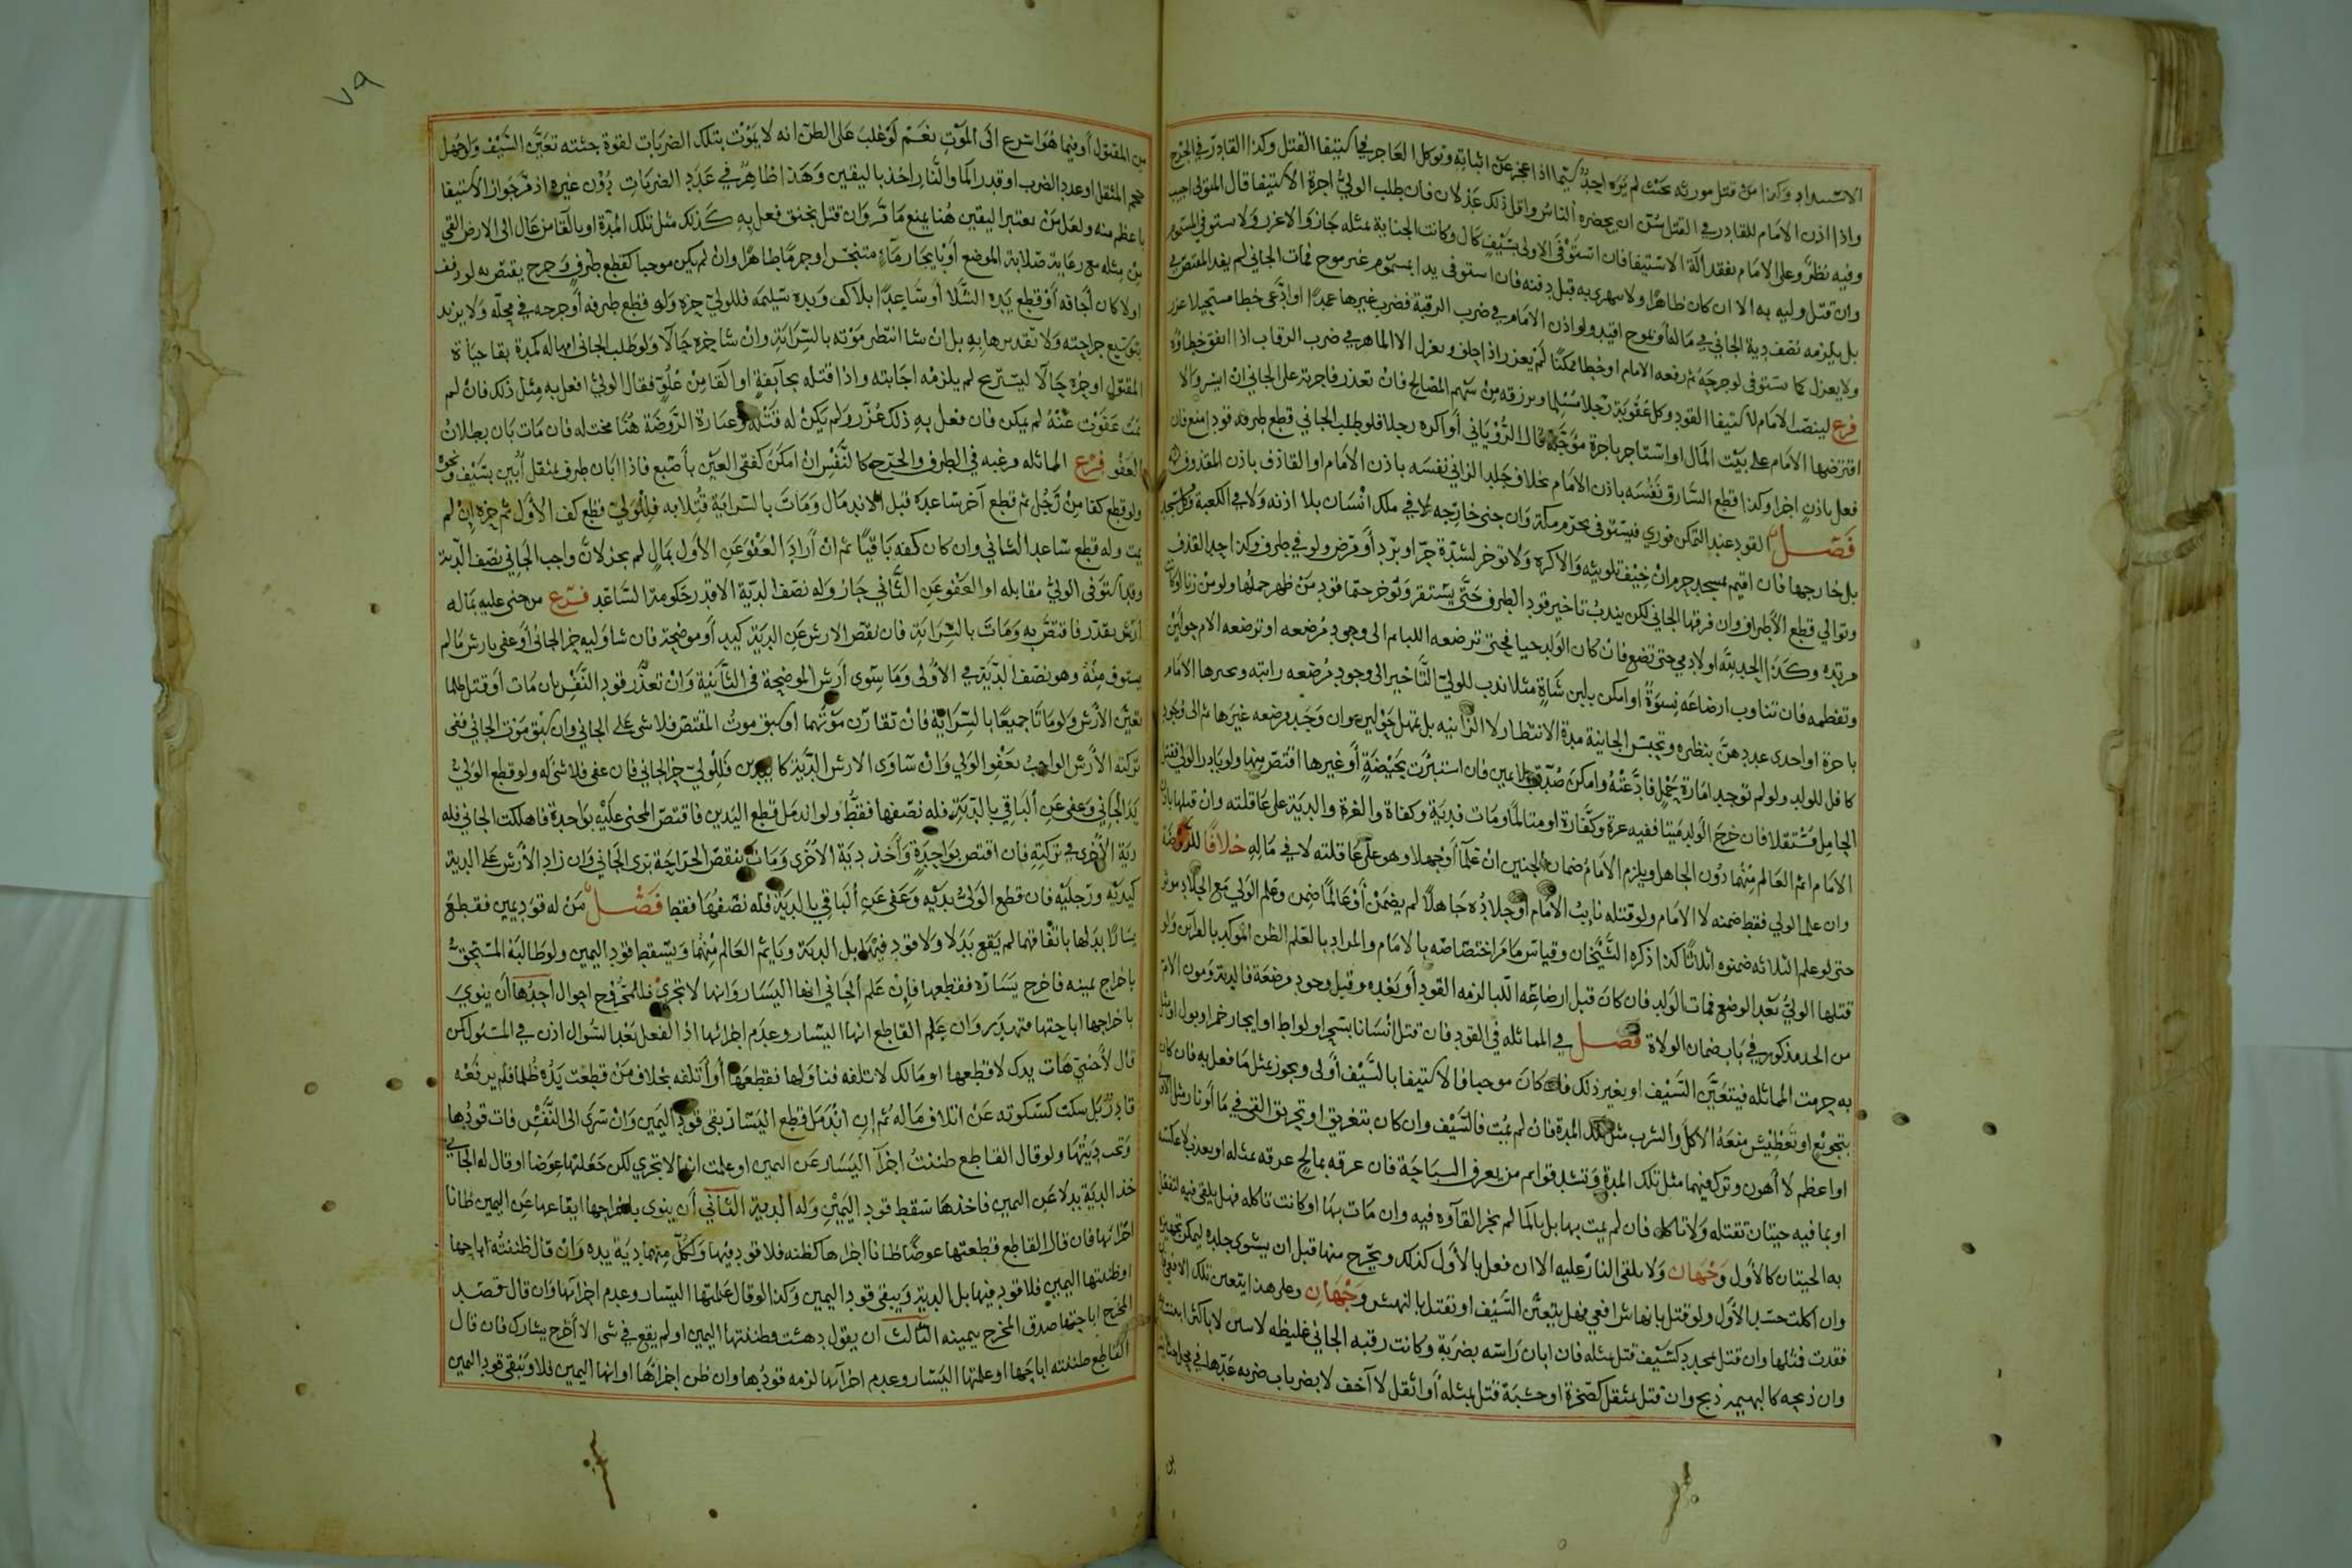 الاستبداد وكذا من قتل مورثه بحيث لم يره احد سيما اذا عجز عن اثباته وتوكل العاجز في استيفا القتل وكذا القادر في الجرح
واذا اذن الامام للقادر في القتل سن ان يحضره الناس واقل ذلك عدلان فان طلب الولي اجرة الاستيفا قال المتولي اجيب
وفيه نظر وعلى الامام تفقد آلة الاستيفا فان استوفى الولي بسيف كال وكانت الجناية بمثله جاز والا عزر ولا يستوفى بمسموم
وان قتل وليه به الا ان كان ظاهرا ولا يهري به قبل دفنه فان استوفى يدا بمسموم غير موح فمات الجاني لم يفد المقتص في
بل يلزمه نصف دية الجاني في ماله او بموح اقيد ولو اذن الامام في ضرب الرقبة فضرب غيرها عمدا او ادعى خطا مستحيلا عزر
ولا يعزل كما ستوفى لو جرحه ثم رفعه الامام او خطا ممكنا لم يعزر اذا حلف ويعزل الا الماهر في ضرب الرقاب اذا اتفق خطاؤه
فرع لينصب الامام لاستيفا القود وكل عقوبة رجلا مسلما ويرزقه من سهم المصالح فان تعذر فاجرته على الجاني ان ايسر والا
اقترضها الامام على بيت المال او استاجر باجرة مؤجلة قال الرؤياني او اكره رجلا فلو طلب الجاني قطع طرفه قودا منع فان
فعل باذن اجزا وكذا قطع السارق نفسه باذن الامام بخلاف جلد الزاني نفسه باذن الامام او القاذف باذن المقذوف
فصل القود عند التمكن فوري فيستوفى بحرم مكة وان جنى خارجه لا في ملك انسان بلا اذنه ولا في الكعبة وكل مسجد
بل خارجها فان اقيم بمسجد حرم ان خيف تلويثه والا كره ولا توخر لشدة حر او برد او مرض ولو في طرف وكذا حد القذف
وتوالي قطع الاطراف وان فرقها الجاني لكن يندب تاخير قود الطرف حتى يستقر وتوخر حتما قود من ظهر حملها ولو من زنا او كانت
مرتده وكذا الحد يته اولادمي حتى تضع فان كان الولد حيا فحتى ترضعه اللبا ثم الى وجود مرضعه او ترضعه الام حولين
وتفطمه فان تناوب ارضاعه نسوة او امكن بلبن شاة مثلا ندب للولي التاخير الى وجود مرضعه راتبه ويجبرها الامام
باجرة او احدى عددهن بنظره وتحبس الجانية مدة الانتظار لا الزانيه بل تمهل حولين وان وجد مرضعه غيرها ثم الى وجود
كافل للولد ولو لم توجد امارة حمل فادعته وامكن صدقت بلا يمين فان استبرئت بحيضة او غيرها اقتص منها ولو بادر الولي فقتل
الحامل مستقلا فان خرج الولد ميتا ففيه غرة وكفارة او متالما ومات فدية وكفاة والغرة والدية على عاقلته وان قتلها باذن
الامام اثم العالم منهما دون الجاهل ويلزم الامام ضمان الجنين ان علما او جهلا وهو على عاقلته لا في ماله خلافا للروضة
وان علم الولي فقط ضمنه لا الامام ولو قتله نايب الامام او جلاده جاهلا لم يضمن او عالما ضمن وعلم الولي مع الجلاد موثر
حتى لو علم الثلاثه ضمنوه اثلاثا كذا ذكره الشيخان وقياس ما مر اختصاصه بالامام والمراد بالعلم الظن الموكد بالقرائن ولو
قتلها الولي بعد الوضع فمات الولد فان كان قبل ارضاعه اللبا لزمه القود او بعده وقبل وجود مرضعة فالدية ومون الام
من الحد مذكور في باب ضمان الولاة فصل في المماثله في القود فان قتل انسانا بسحر او لواط او ايجار خمر او بول او مثل
به حرمت المماثله فيتعين السيف او بغير ذلك فان كان موحيا فالاستيفا بالسيف اولى ويجوز بمثل ما فعل به فان كان
بتجويع او تعطيش منعه الاكل والشرب مثل تلك المدة فان لم يمت فالسيف وان كان بتغريق او تحريق القي في ما او نار مثل الاول
او اعظم لا اهون وترك فيهما مثل تلك المدة وتشد قوائم من يعرف السباحة فان غرقه بمالح غرقه بمثله او بعذب لا عكسه
او بما فيه حيتان تقتله ولا تاكله فان لم يمت بها بل بالما لم يجز القاوه فيه وان مات بها او كانت تاكله فهل يلقى فيه لتفعل
به الحيتان كالاول وجهان ولا تلقى النار عليه الا ان فعل بالاول كذلك ويخرج منها قبل ان يشوى جلده ليمكن تجهيزه
وان اكلت جسد الاول ولو قتل بانهاش افعي فهل يتعين السيف او تقتل بالنهش وجهان وعلى هذا يتعين تلك الافعي
فقدت فمثلها وان قتل بمحدد كسيف قتل بمثله فان ابان راسه بضربة وكانت رقبه الجاني غليظه لا
وان ذبحه كالبهيمه ذبح وان قتل بمثقل كصخرة او خشبة قتل بمثله او اثقل لا اخف لا بضرباب ضربه عدها في محل
من
٧٩
من المقتول او فيما هو اسرع الى الموت نعم لو غلب على الظن انه لا يموت بتلك الضربات لقوة جثته تعين السيف ولو جهل
حجم المثقل او عدد الضرب او قدر الما والنار اخذ باليقين وهذا ظاهر في عدد الضربات دون غيره اذ مر جواز الاستيفا
باعظم منه ولعل من يعتبر اليقين هنا يمنع ما مر وان قتل بخنق فعل به كذلك مثل تلك المدة او بالقا من عال الى الارض القي
من مثله مع رعاية صلابة الموضع او بايجار ماء متنجس او جر ما طاهرا وان لم يكن موحيا كقطع طرف وجرح يقتص به لو وقف
اولا كان اجافه او قطع يده الشلا او ساعدا بلا كف ويده سليمه فللولي حزه وله قطع طرفه او جرحه في محله ولا يزيد
بتوسيع جراحته ولا تقديرها به بل ان شا انتظر موته بالسراية وان شا حزه حالا ولو طلب الجاني امهاله مدة بقا حياة
المقتول او حزه حالا ليستريح لم يلزمه اجابته واذا قتله بجآيفة او القا من علو فقال الولي افعل به مثل ذلك فان لم
يمت عفوت عنه لم يمكن فان فعل به ذلك عزر ولم يكن له قتله وعبارة الروضة هنا مختله فان مات بان بطلان
العفو فرع المماثله مرعيه في الطرف والجرح كالنفس ان امكن كفقي العين باصبع فاذا ابان طرف بمثقل ابين بسيف ونحوه
ولو قطع كفا من رجل ثم قطع آخر ساعده قبل الاندمال ومات بالسراية قتلا به فللولي قطع كف الاول ثم حزه ان لم
يمت وله قطع ساعد الثاني وان كان كفه باقيا ثم ان اراد العفو عن الاول بمال لم يجز لان واجب الجاني نصف الدية
وقد استوفى الولي مقابله او العفو عن الثاني جاز وله نصف الدية الا قدر حكومة الساعد فرع من جنى عليه بماله
ارش بقدر فاقتص به ومات بالسراية فان نقص الارش عن الدية كيد او موضحة فان شا وليه حز الجاني او عفى بارش ما لم
يستوف منه وهو نصف الدية في الاولى وما سوى ارش الموضحة في الثانية وان تعذر قود النفس بان مات او قتل ظلما
تعين الارش ولو ماتا جميعا بالسراية فان تقارن موتهما او سبق موت المقتص فلا شي على الجاني وان سبق موت الجاني ففى
تركته الارش الواجب بعفو الولي وان ساوى الارش الدية كاليدين فللولي حز الجاني فان عفى فلا شي له ولو قطع الولي
يد الجاني وعفى عن الباقي بالدية فله نصفها فقط ولو اندمل قطع اليدين فاقتص المجنى عليه بواحدة فاهلكت الجاني فله
دية الاخرى في تركته فان اقتص بواحدة واخذ دية الاخرى ومات بنقض الجراحة بري الجاني وان زاد الارش على الدية
كيديه ورجليه فان قطع الولي يديه وعفى عن الباقي بالدية فله نصفها فقط فصل من له قود يمين فقطع
يسارا بدلها باتفاقهما لم يقع بدلا ولا قود فيها بل الدية وياثم العالم منهما ويسقط قود اليمين ولو طالبه المستحق
باخراج يمينه فاخرج يساره فقطعها فان علم الجاني انها اليسار وانها لا تجزي فللمخرج احوال احدها ان ينوي
باخراجها اباحتها فتهدر وان علم القاطع انها اليسار وعدم اجزائها اذ الفعل بعد السوال اذن في المسئول كمن
قال لأجنبي هات يدك لاقطعها او مالك لاتلفه فناولها فقطعها او اتلفه بخلاف من قطعت يده ظلما فلم يرفعه
قادر بل سكت كسكوته عن اتلاف ماله ثم ان اندمل قطع اليسار بقى قود اليمين وان سرى الى النفس فات قودها
وتجب ديتها ولو قال القاطع ظننت اجزآ اليسار عن اليمين او علمت انها لا تجزي لكن جعلتها عوضا او قال له الجاني
خذ الدية بدلا عن اليمين فاخذها سقط قود اليمين وله الدية الثاني ان ينوى باخراجها ايقاعها عن اليمين ظانا
اجزائها فان قال القاطع قطعتها عوضا ظانا اجزاها كظنه فلا قود فيها ولكل منهما دية يده وان قال ظننته اباحها
او ظننتها اليمين فلا قود فيها بل الدية ويبقى قود اليمين وكذا لو قال علمتها اليسار وعدم اجزآئها وان قال قصد
المخرج اباحتها صدق المخرج بيمينه الثالث ان يقول دهشت وظننتها اليمين او لم يقع في شي الا اخرج يسارك فان قال
القاطع ظننته اباحها او علمتها اليسار وعدم اجزآئها لزمه قودها وان ظن اجزائها او انها اليمين فلا ويبقى قود اليمين